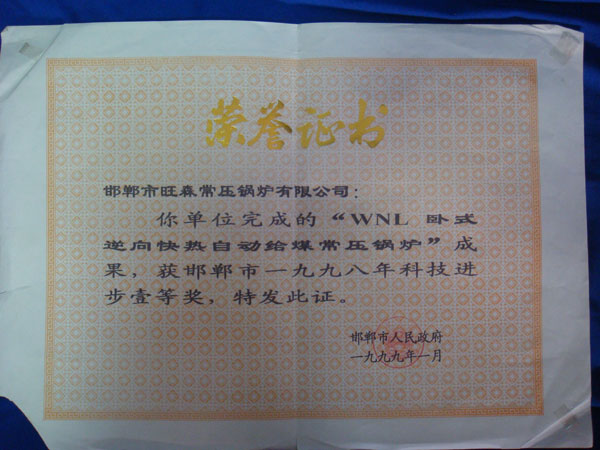 荣誉证书
邯郸市旺森常压锅炉有限公司：
你单位完成的“WNL 卧式
逆向快热自动给煤常压锅炉”成
果，获邯郸市一九九八年科技进
步壹等奖，特发此证。
邯郸市人民政府
一九九九年一月